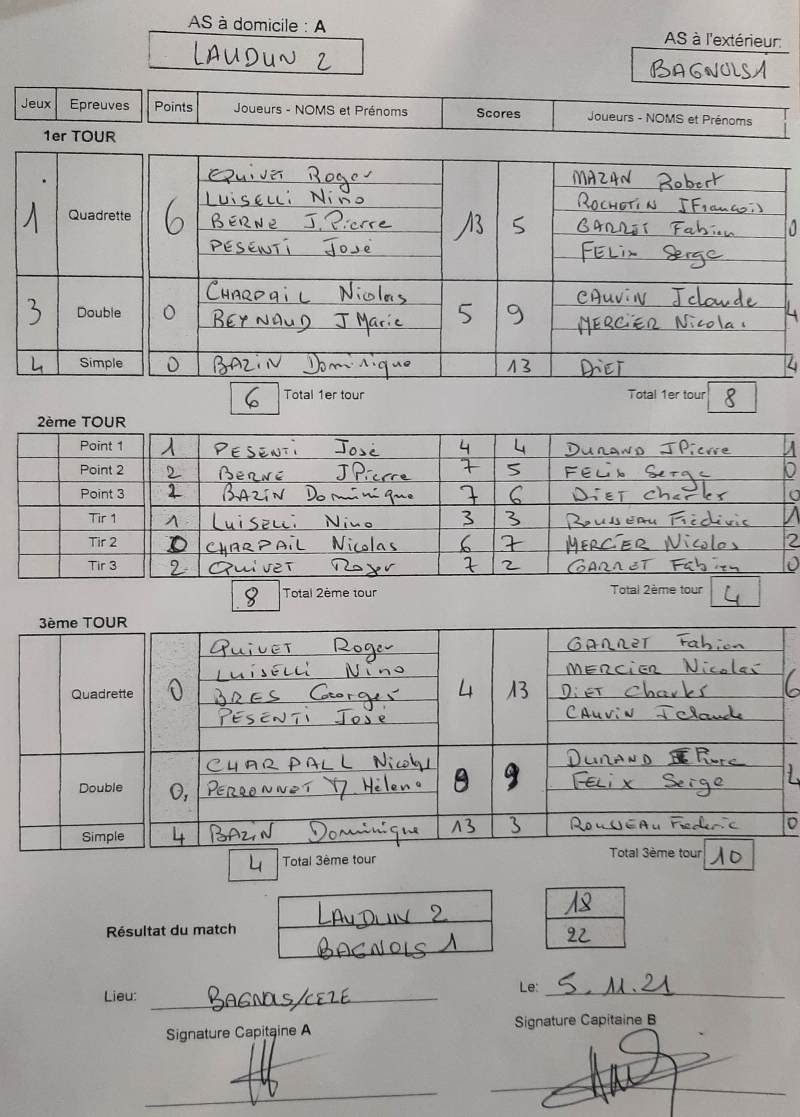 AS à domicile : A
LAUDUN 2
AS à l'extérieur:
BAGNOLS 1
Jeux Epreuves Points Joueurs - NOMS et Prénoms Scores Joueurs - NOMS et Prénoms
1er TOUR
QUIVET Roger MAZAN Robert
LUISELLI Nino ROCHETIN JFrançois
1 Quadrette 6 BERNE J.Pierre 13 5 GARRET Fabien 0
PESENTI José FELIX Serge
CHARPAIL Nicolas CAUVIN Jclaude
3 Double 0 BEYNAUD J Marie 5 9 MERCIER Nicolas 4
4 Simple 0 BAZIN Dominique 13 DIET 4
6 Total 1er tour Total 1er tour 8
2ème TOUR
Point 1 1 PESENTI José 4 4 DURAND JPierre 1
Point 2 2 BERNE JPierre 7 5 FELIX Serge 0
Point 3 2 BAZIN Dominique 7 6 DIET Charles 0
Tir 1 1 LUISELLI Nino 3 3 ROUSSEAU Frédéric 1
Tir 2 0 CHARPAIL Nicolas 6 7 MERCIER Nicolas 2
Tir 3 2 QUIVET Roger 7 2 GARRET Fabien 0
8 Total 2ème tour Total 2ème tour 4
3ème TOUR
QUIVET Roger GARRET Fabien
LUISELLI Nino MERCIER Nicolas
Quadrette 0 BRES Georges 4 13 DIET Charles 6
PESENTI José CAUVIN Jclaude
CHARPALL Nicolas DURAND Pierre
Double 0, PERRONNET Hélène 9 FELIX Serge 4
Simple 4 BAZIN Dominique 13 3 ROUSSEAU Frederic 0
4 Total 3ème tour Total 3ème tour 10
Résultat du match LAUDUN 2 18
BAGNOLS 1 22
Lieu: BAGNOLS/CEZE Le: 5.11.21
Signature Capitaine A Signature Capitaine B